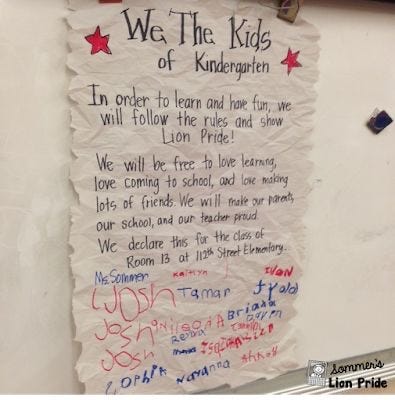 We The Kids
of Kindergarten
In order to learn and have fun, we
will follow the rules and show
Lion Pride!
We will be free to love learning,
love coming to school, and love making
lots of friends. We will make our parents,
our school, and our teacher proud.
We declare this for the class of
Room 13 at 112th Street Elementary.
Ms. Sommer Kaitlyn Ivan
Josh Tamar
Briana
Josh
Josh
Sophia Nayanna
Sommer's
Lion Pride